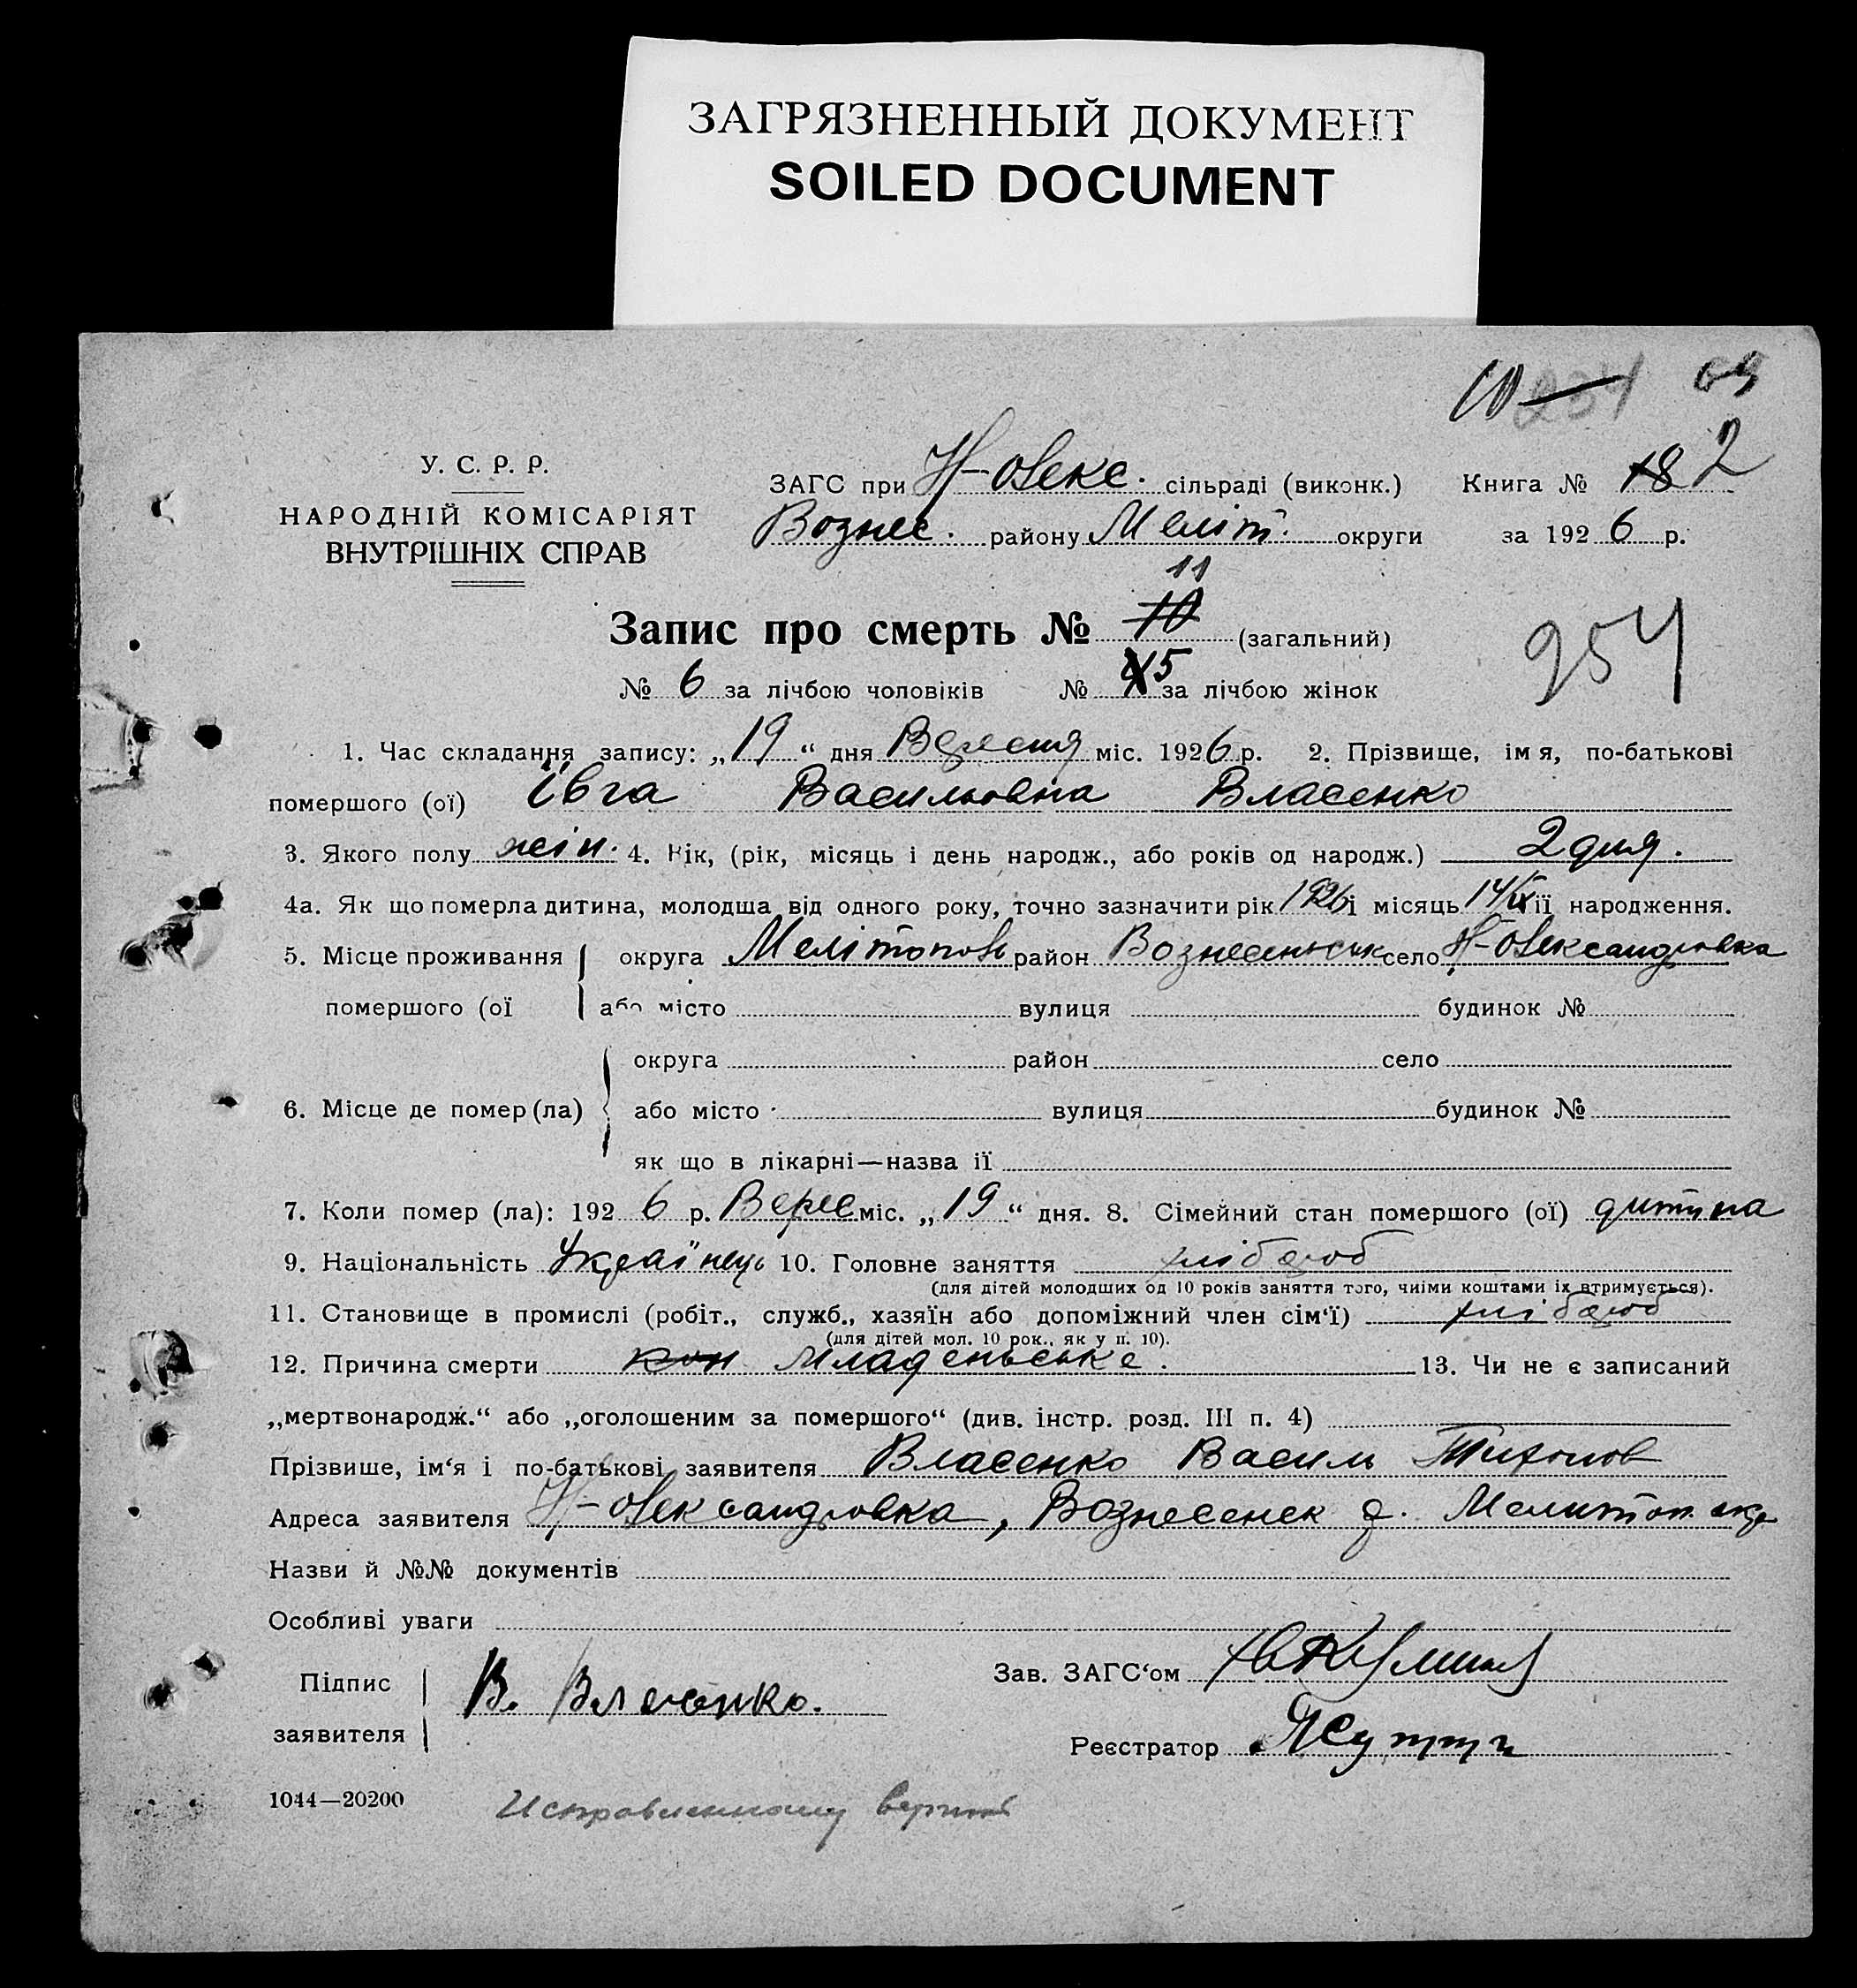 ЗАГРЯЗНЕННЫЙ ДОКУМЕНТ
SOILED DOCUMENT
У. С. Р. Р.
НАРОДНІЙ КОМІСАРІЯТ
ВНУТРІШНІХ СПРАВ
ЗАГС при Н-Олекс. сільраді (виконк.) Книга № 18 2
Вознес. району Меліт. округи за 1926 р.
11
Запис про смерть № 10 (загальний)
№ 6 за лічбою чоловіків № 5 за лічбою жінок
254
1. Час складання запису: „19“ дня Вересня міс. 1926 р. 2. Прізвище, імя, по-батькові
помершого (ої) Івга Васильовна Власенко
3. Якого полу жін. 4. Рік, (рік, місяць і день народж., або років од народж.) 2 дня.
4а. Як що померла дитина, молодша від одного року, точно зазначити рік 1926 і місяць 14/ІХ її народження.
5. Місце проживання округа Мелітополь район Вознесенськ село Н-Олександровка
помершого (ої або місто вулиця будинок №
округа район село
6. Місце де помер (ла) або місто вулиця будинок №
як що в лікарні—назва ії
7. Коли помер (ла): 1926 р. Верес міс. „19“ дня. 8. Сімейний стан помершого (ої) дитина
9. Національність Українець 10. Головне заняття хлібороб
(для дітей молодших од 10 років заняття того, чиїми коштами іх втримується).
11. Становище в промислі (робіт., служб., хазяїн або допоміжний член сім‘ї) хлібороб
(для дітей мол. 10 рок., як у п. 10).
12. Причина смерти кон Младеньське. 13. Чи не є записаний
„мертвонародж.“ або „оголошеним за помершого“ (див. інстр. розд. III п. 4)
Прізвише, ім‘я і по-батькові заявителя Власенко Василь Тихонов
Адреса заявителя Н-Олександровка, Вознесенск р. Мелитоп. окр
Назви й №№ документів
Особливі уваги
Підпис
заявителя
В. Власенко.
Зав. ЗАГС‘ом
Реєстратор
1044—20200
Исправленному верить